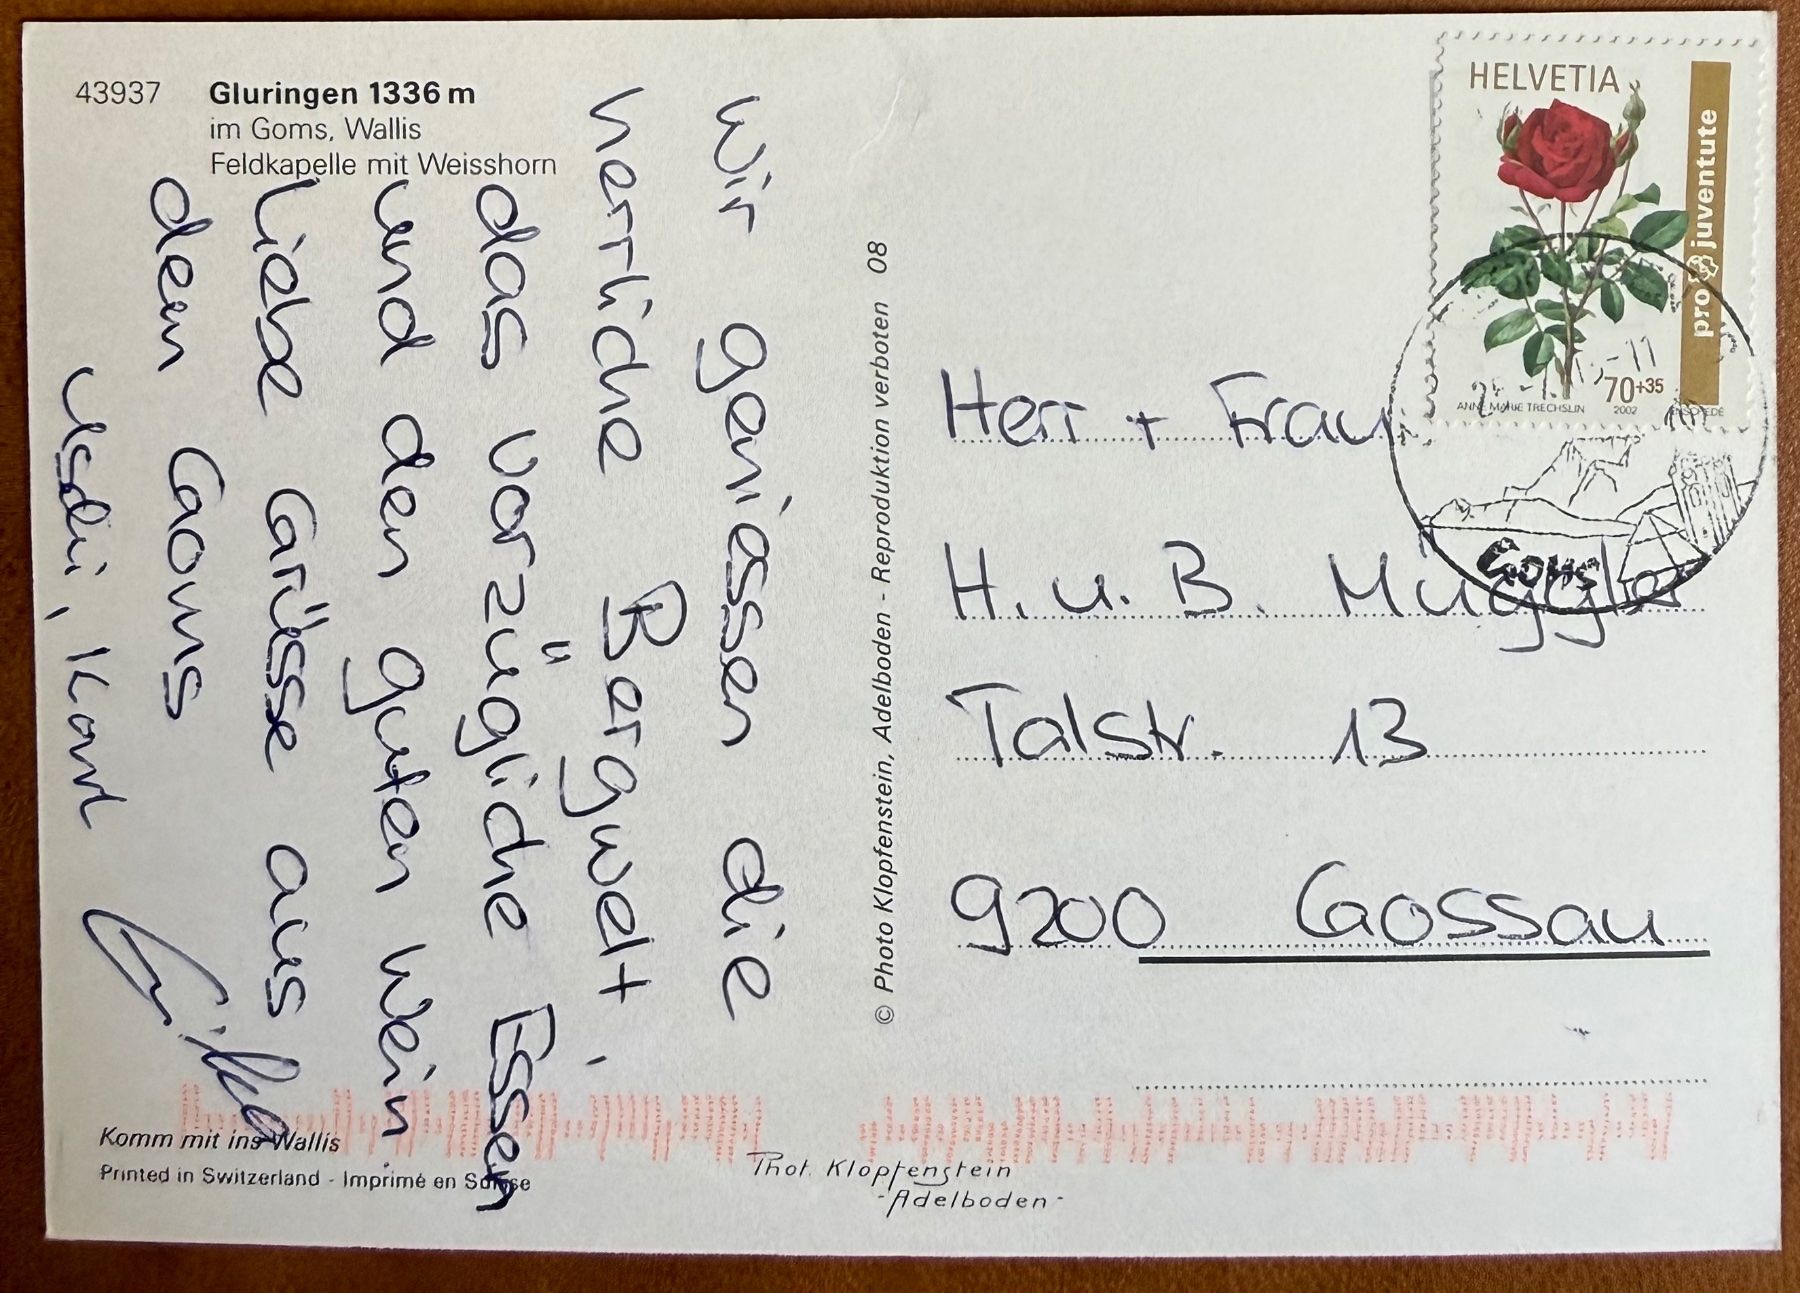 43937
Gluringen 1336 m
im Goms, Wallis
Feldkapelle mit Weisshorn
Wir geniessen die
herrliche Bergwelt,
das vorzügliche Essen
und den guten Wein
Liebe Grüsse aus
dem Goms
Usdi, Karl
Komm mit ins Wallis
Printed in Switzerland - Imprimé en Suisse
© Photo Klopfenstein, Adelboden - Reproduktion verboten 08
Phot. Klopfenstein
-Adelboden-
HELVETIA
pro juventute
70+35
ANNE MARIE TRECHSLIN 2002 ENSCHEDÉ
Goms
Herr + Frau
H. u. B. Müggler
Talstr. 13
9200 Gossau